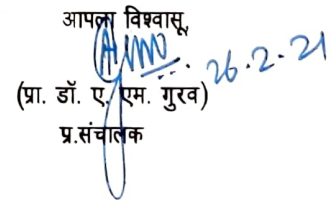 आपला विश्वासू,
26.2.21
(प्रा. डॉ. ए. एम. गुरव)
प्र.संचालक